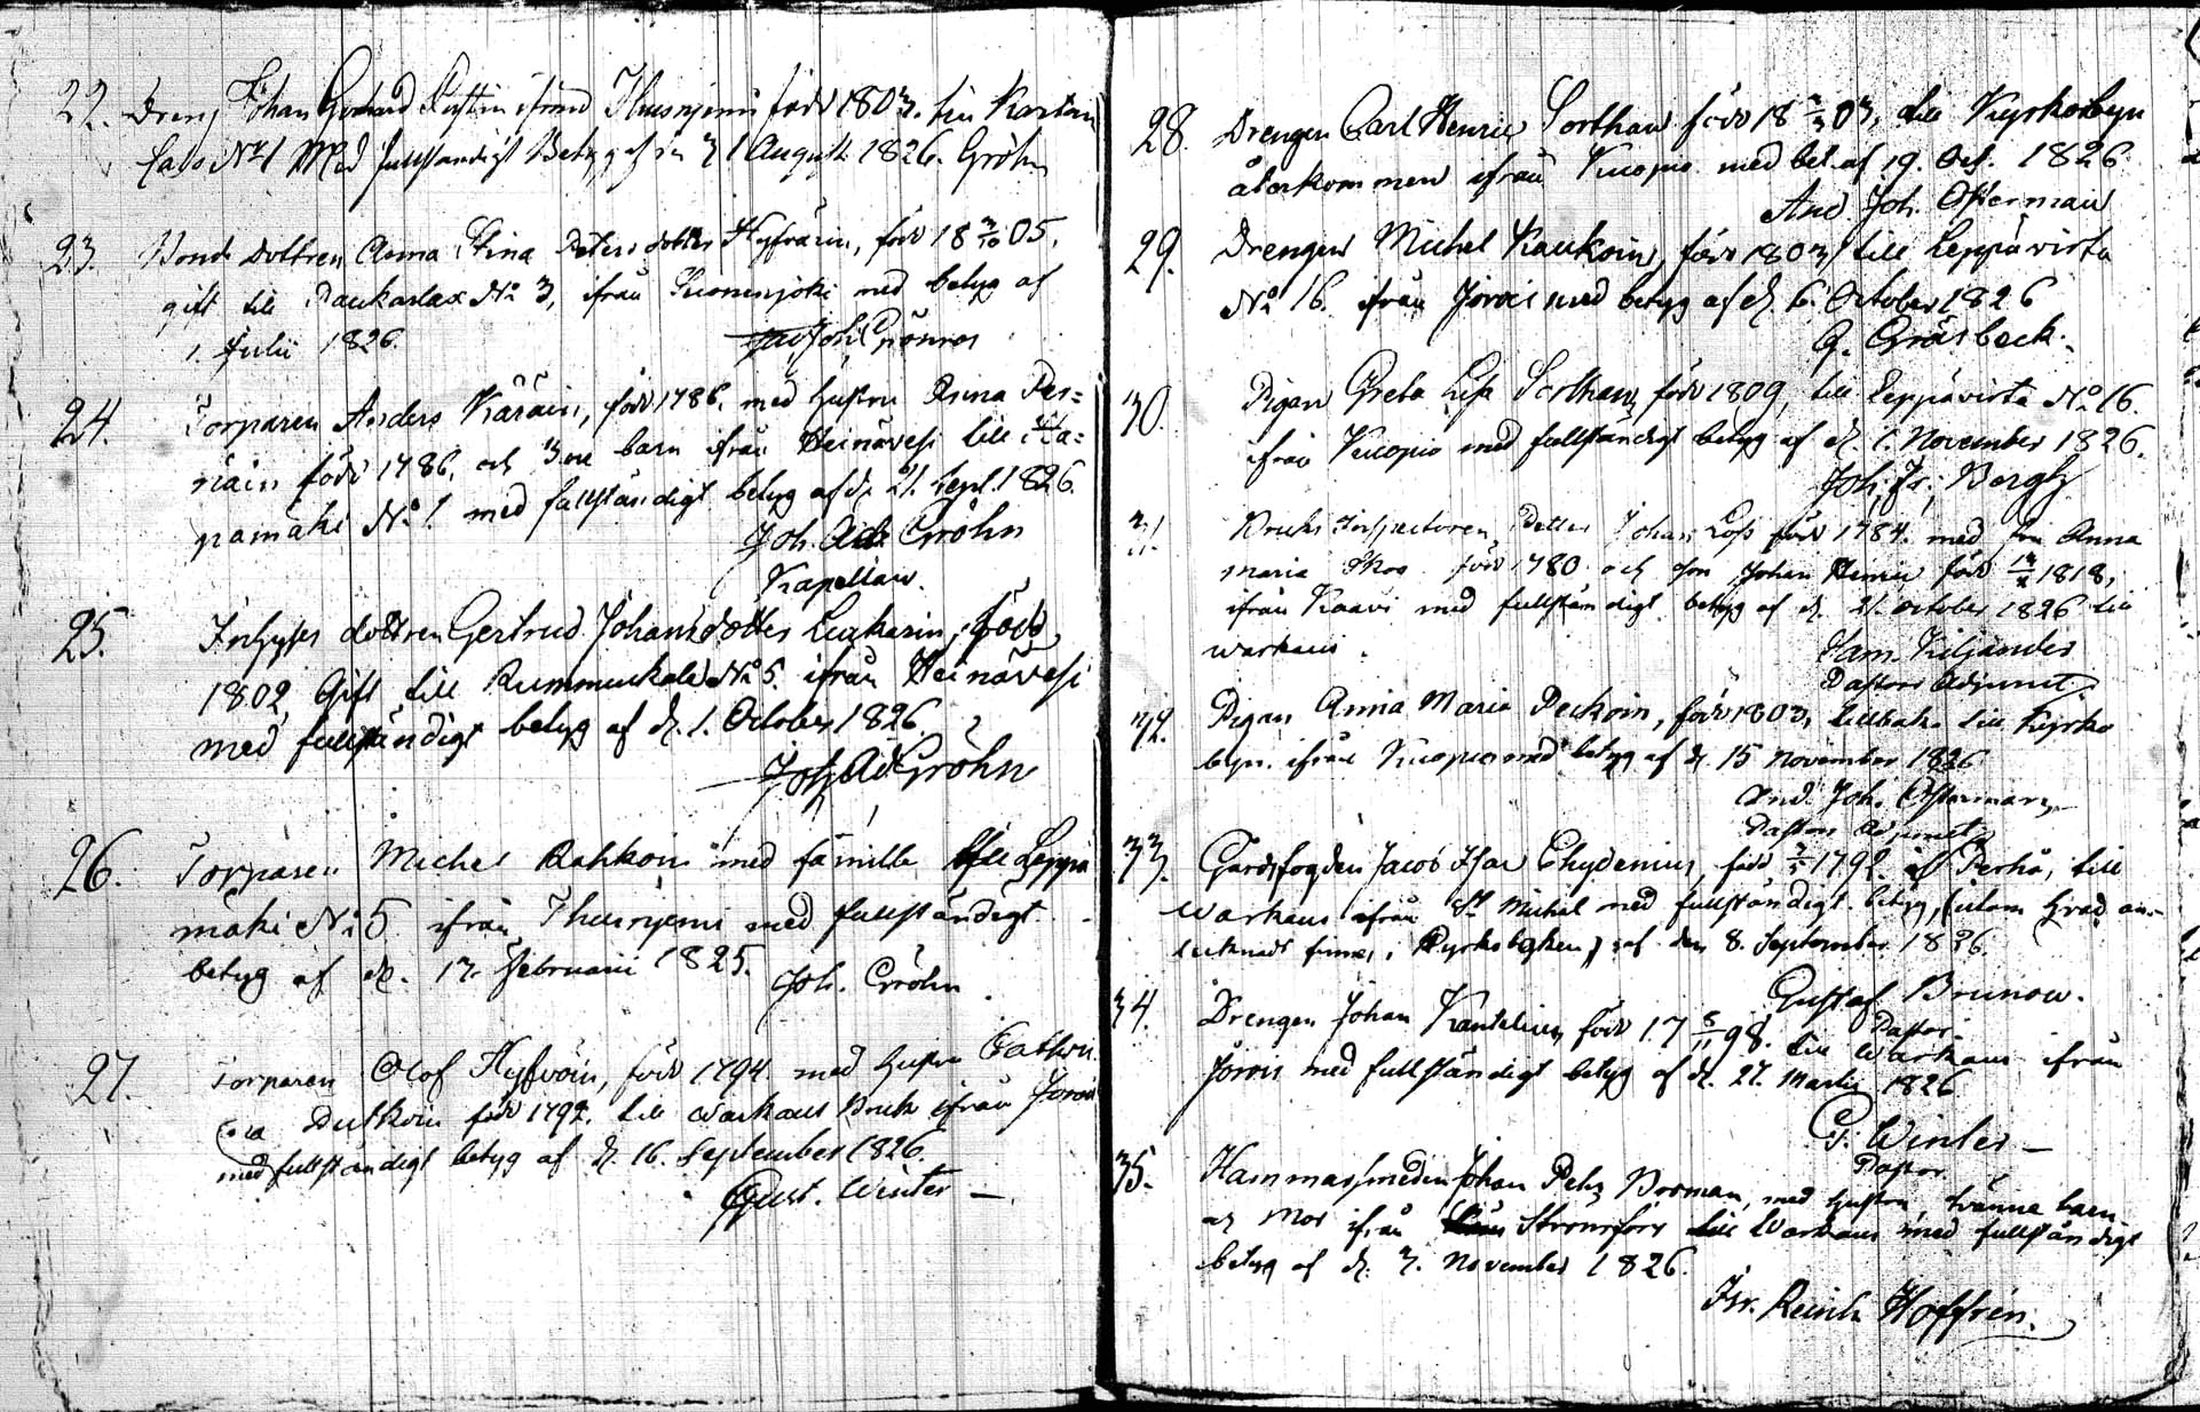 22. Dreng Johan Gerhard ifrån Thusnjemi född 1803. till
No 1 Med fullständigt Betyg af d 1 August 1826. Gröhn
23. Bonde dottren Anna Stina Petersdotter Hyfvärin, född 18 3/10 05,
gift till Paukarlax No 3, ifrån Suonenjoki med betyg af
1. Julii 1826. Joh. Grönros
24. Torparen Anders Käräin, född 1786. med hustru Anna Per=
näin född 1786. och 3ne barn ifrån Heinävesi till Ka=
pamäki No 1. med fullständigt betyg af d. 21. Sept. 1826.
Joh. Ad. Gröhn
Kapellan.
25. Inhyses dottren Gertrud Johansdotter Liukarin, född
1802 Gift till Rummukala No 5. ifrån Heinävesi
med fullständigt betyg af d. 1. October 1826.
Joh Ad Gröhn
26. Torparen Michel Rahkoin med familla till Leppä
mäki No 5 ifrån Thusnjemi med fullständigt
betyg af d. 13. Februarii 1825. Joh. Gröhn
27. Torparen Olof Hyfvöin, född 1794. med hustru Cathri
na Putkoin född 1792. till Warkaus Bruk ifrån Jorois
med fullständigt betyg af d. 16. September 1826.
Gust. Winter
28. Drengen Carl Henric Sorthan född 18 03, till Kyrkobyn
återkommen ifrån Kuopio med bet. af 19. Oct. 1826
And. Joh. Osterman
29. Drengen Michel Kaukoin, född 1803 till Leppävirta
No 16. ifrån Jorois med betyg af d. 6. October 1826
G. Gräsbeck.
30. Pigan Greta Lisa Sorthan, född 1809, till Leppävirta No 16.
ifrån Kuopio med fullständigt betyg af d. 1. November 1826.
Joh. Fr. Bergh
31. Bruks Inspectoren Petter Johan Loss född 1784. med fru Anna
Maria Skog född 1780 och son Johan Henric född 1818,
ifrån Kaavi med fullständigt betyg af d. 21. October 1826 till
Warkaus. Sam. Kiljander
Pastors Adjunct
32. Pigan Anna Maria Peckoin, född 1803, tillbaka till Kyrko
byn. ifrån Kuopio med betyg af d. 15 November 1826
And. Joh. Osterman
Pastors Adjunct
33. Gårdsfogden Jacob Isac Chydenius, född 1792. i Perho, till
Warkaus ifrån St Michel med fullständigt betyg, (utom hvad an-
tecknadt finnes i Kyrkoboken) af den 8. September 1826.
Gustaf Brunow.
Pastor
34. Drengen Johan Kantelius, född 17 5/11 98. till Warkaus ifrån
Jorois med fullständigt betyg af d. 27. Martii 1826
G. Winter
Pastor
35. Hammarsmeden Johan Pehr Norman, med hustru, tvänne barn
och Mor ifrån Strömfors till Warkaus med fullständigt
betyg af d. 3. November 1826.
Isr. Reinh Hoffrén.